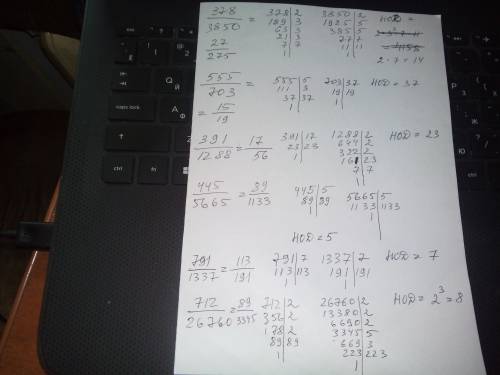 378/3850 = 27/275
378 | 2
189 | 3
63 | 3
21 | 3
7 | 7
1
3850 | 2
1925 | 5
385 | 5
77 | 7
11 | 11
1
НОД =
2·7=14
555/703 = 15/19
555 | 5
111 | 3
37 | 37
1
703 | 37
19 | 19
1
НОД = 37
391/1288 = 17/56
391 | 17
23 | 23
1
1288 | 2
644 | 2
322 | 2
161 | 23
7 | 7
1
НОД = 23
445/5665 = 89/1133
445 | 5
89 | 89
1
5665 | 5
1133 | 1133
1
НОД = 5
791/1337 = 113/191
791 | 7
113 | 113
1
1337 | 7
191 | 191
1
НОД = 7
712/26760 = 89/3345
712 | 2
356 | 2
178 | 2
89 | 89
1
26760 | 2
13380 | 2
6690 | 2
3345 | 5
669 | 3
223 | 223
1
НОД = 2³ = 8